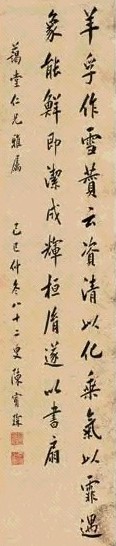 羊孚作雪贊云資清以化乘氣以霏遇
象能鮮即潔成輝桓胤遂以書扇
藹堂仁兄雅屬
己巳仲冬八十二叟陳寶琛